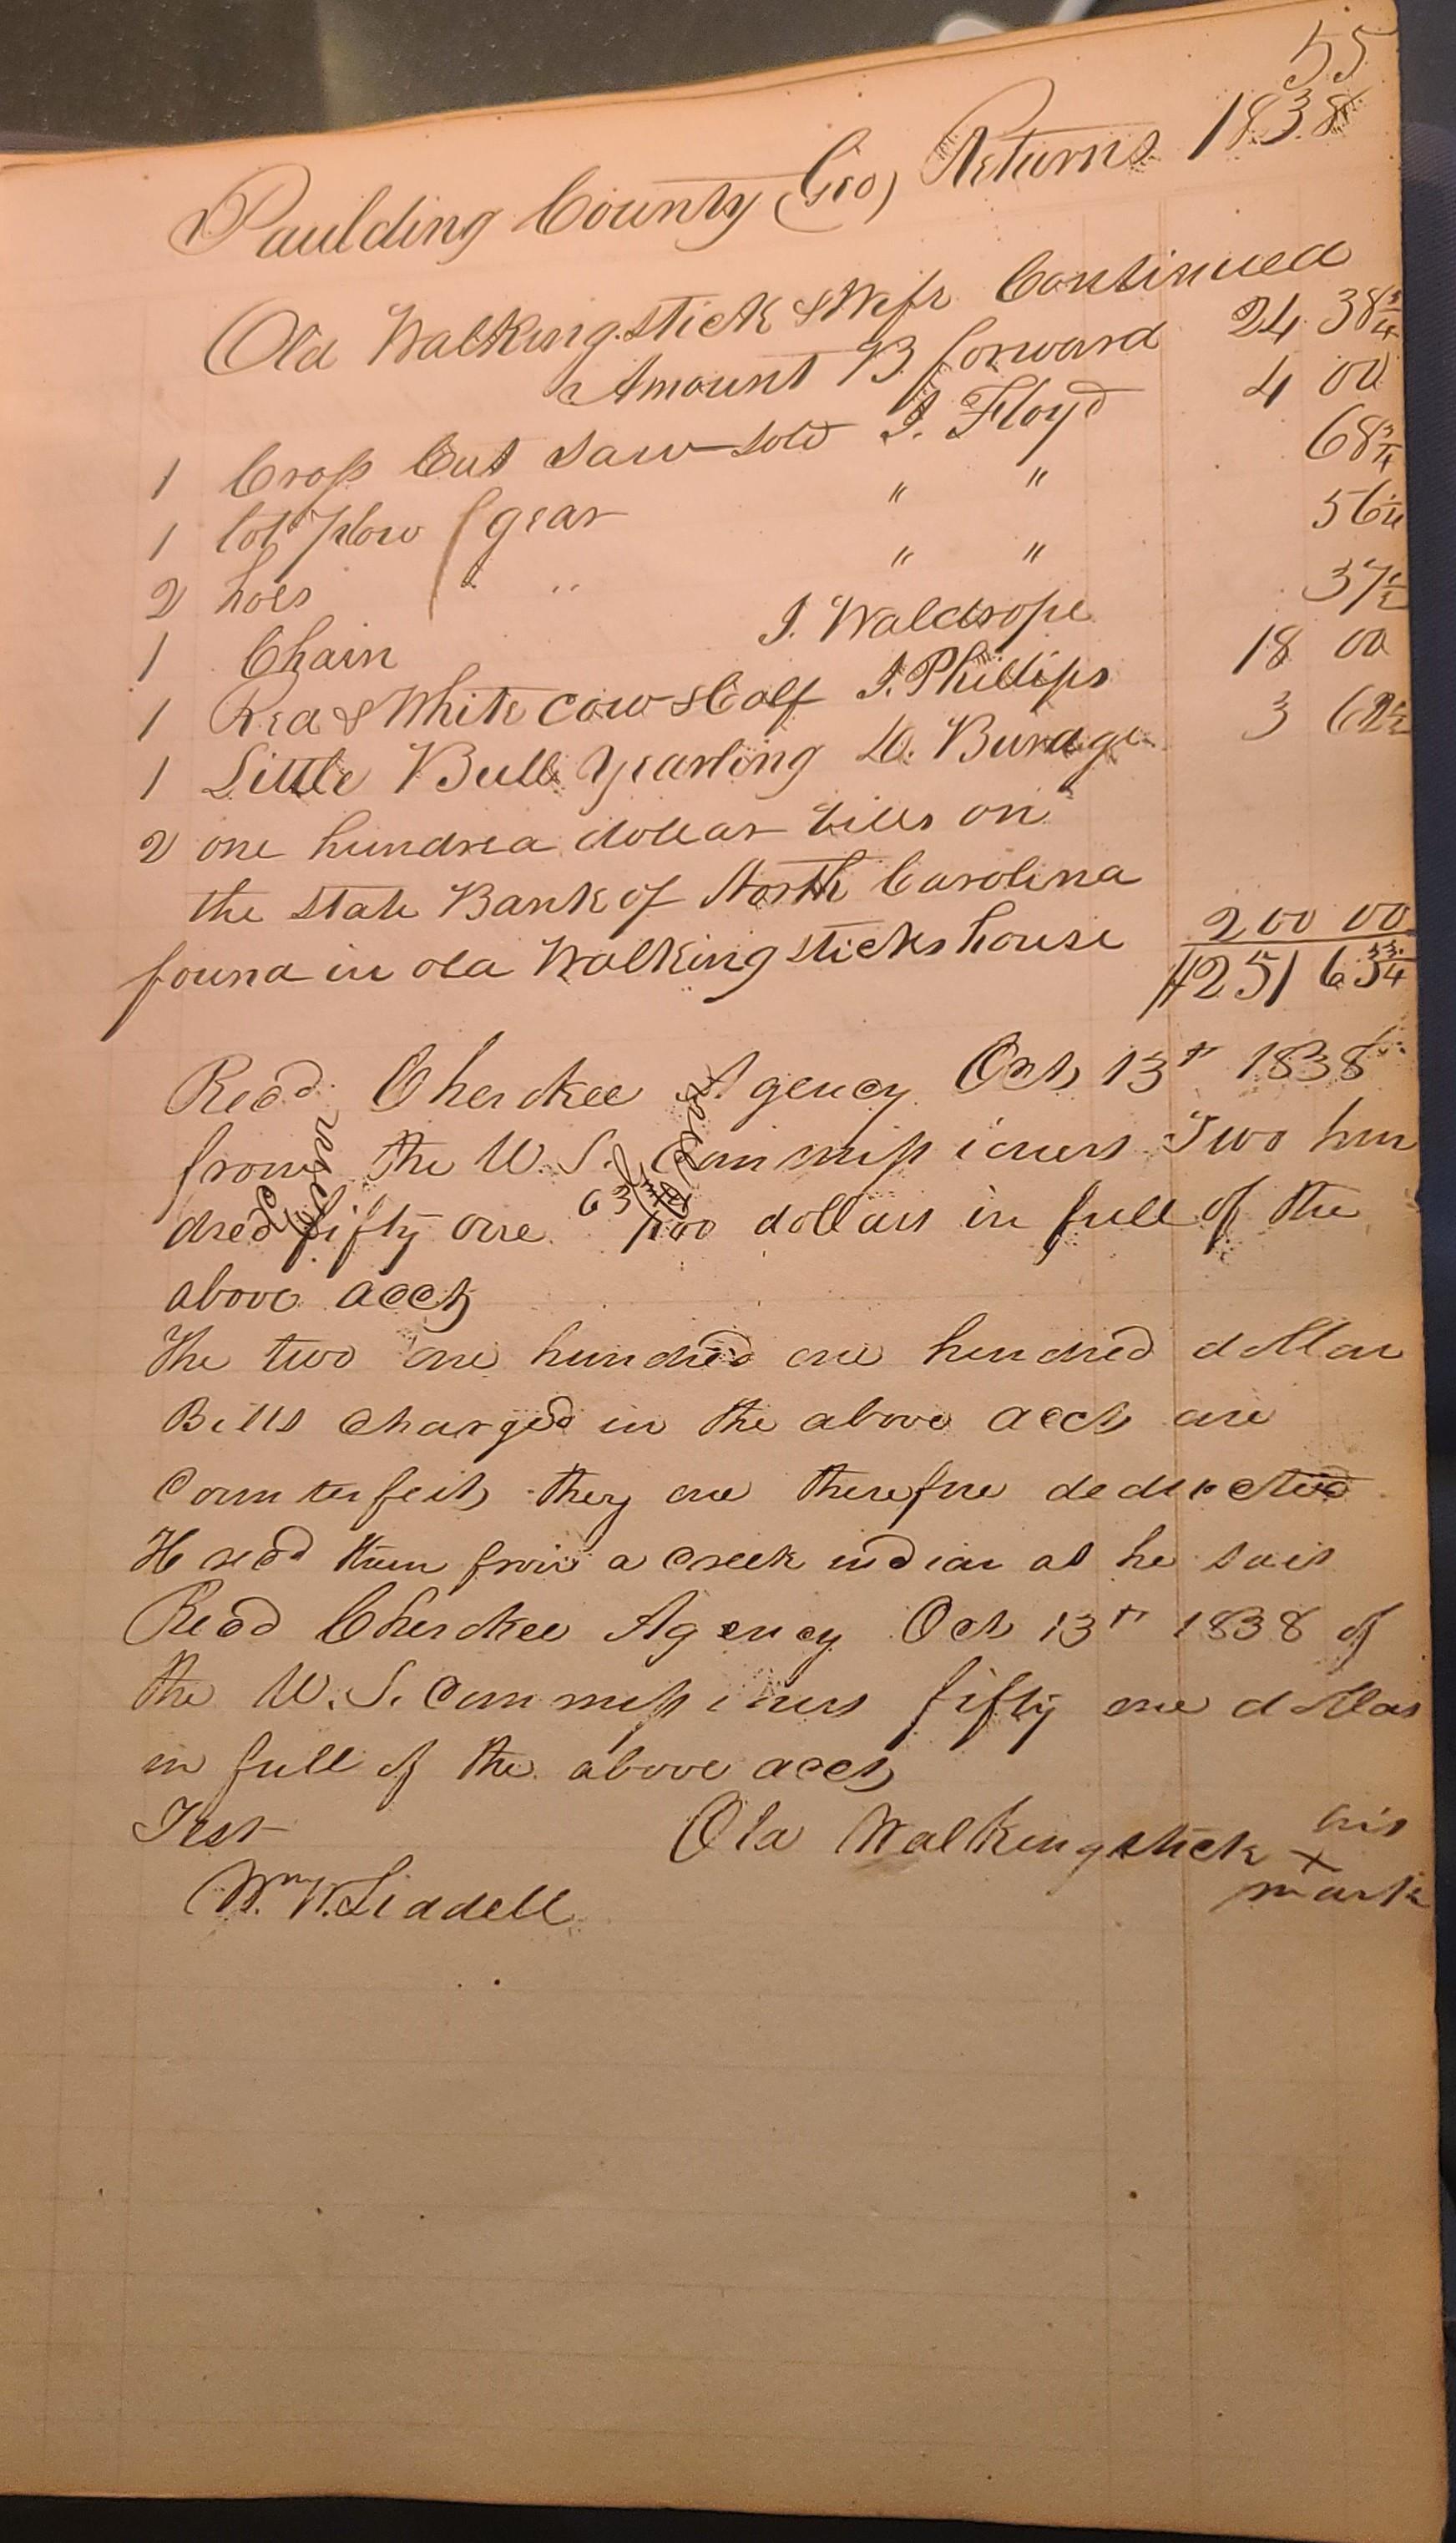 55
Paulding County (Geo) Returns 1838
Old Walkingstick & Wife Continued
Amount B. forward 24 38 3/4
1 Cross Cut Saw sold J. Floyd 4 00
1 lot plow gear " " 68 3/4
2 hoes " " " " 56 1/4
1 Chain J. Waldrope 37 1/2
1 Red & White cow & Calf J. Phillips 18 00
1 Little Bull Yearling D. Burage 3 62 1/2
2 one hundred dollar bills on
the State Bank of North Carolina
found in old Walkingsticks house 200 00
$251 63 3/4
Recd Cherokee Agency Oct 13th 1838
from the U. S. Commissioners Two hun
dred fifty one 63 3/4/100 dollars in full of the
above acct
The two one hundred one hundred dollar
Bills charged in the above acct are
Counterfeit they are therefore deducted
He recd them from a Creek indian as he sais
Recd Cherokee Agency Oct 13th 1838 of
the U. S. Commissioners fifty one dollars
in full of the above acct
Test Old Walkingstick his
x
Wm. W. Liddell mark